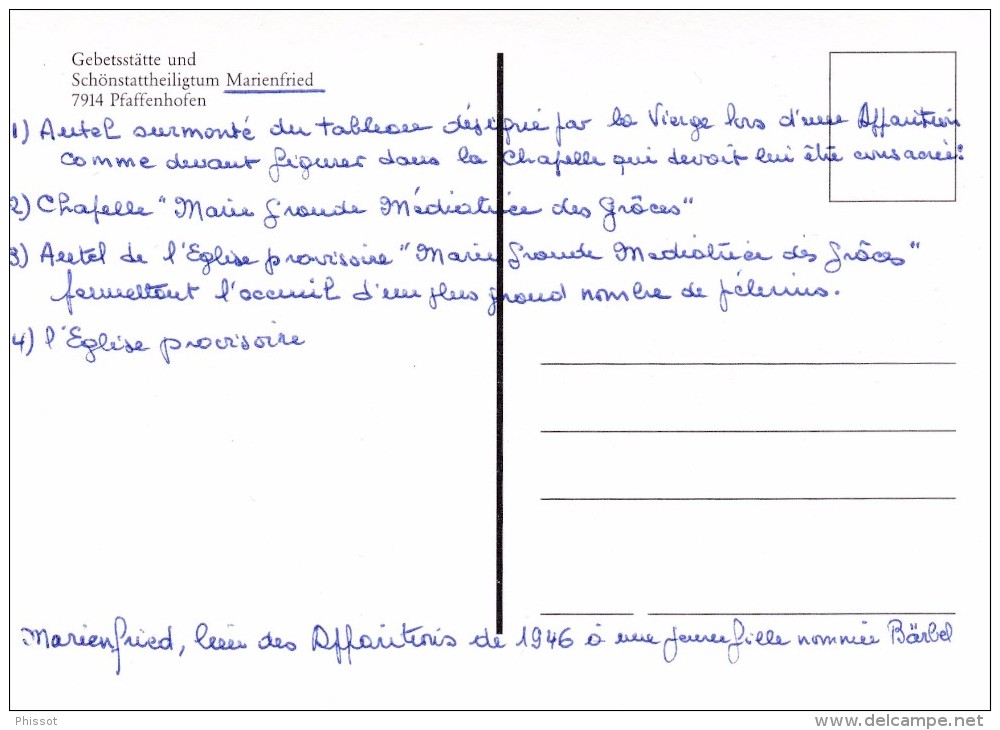 Gebetsstätte und
Schönstattheiligtum Marienfried
7914 Pfaffenhofen
1) Autel surmonté du tableau désigné par la Vierge lors d'une Apparition
comme devant figurer dans la Chapelle qui devait lui être consacrée.
2) Chapelle "Marie Grande Médiatrice des Grâces"
3) Autel de l'Eglise provisoire "Marie Grande Mediatrice des Grâces"
permettant l'acceuil d'un plus grand nombre de pélerins.
4) l'Eglise provisoire
Marienfried, lieu des Apparitions de 1946 à une jeune fille nommée Bärbel
Phissot
www.delcampe.net